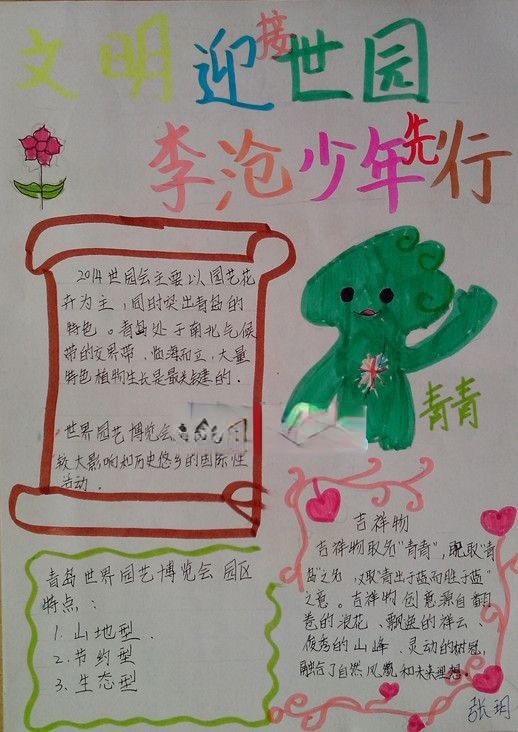 文明迎接世园
李沧少年先行
2014世园会主要以园艺花
卉为主,同时突出青岛的
特色。青岛处于南北气候
带的交界带、临海而立,大量
特色植物生长是最关键的.
世界园艺博览会
较大影响和历史悠久的国际性
活动.
青青
青岛世界园艺博览会园区
特点:
1.山地型.
2.节约型
3.生态型
吉祥物
吉祥物取名"青青",既取"青
岛"之名 又取"青出于蓝而胜于蓝"
之意。吉祥物创意源自翻
卷的浪花、飘逸的祥云、
俊秀的山峰、灵动的树冠,
融合了自然风貌和未来理想.
张玥